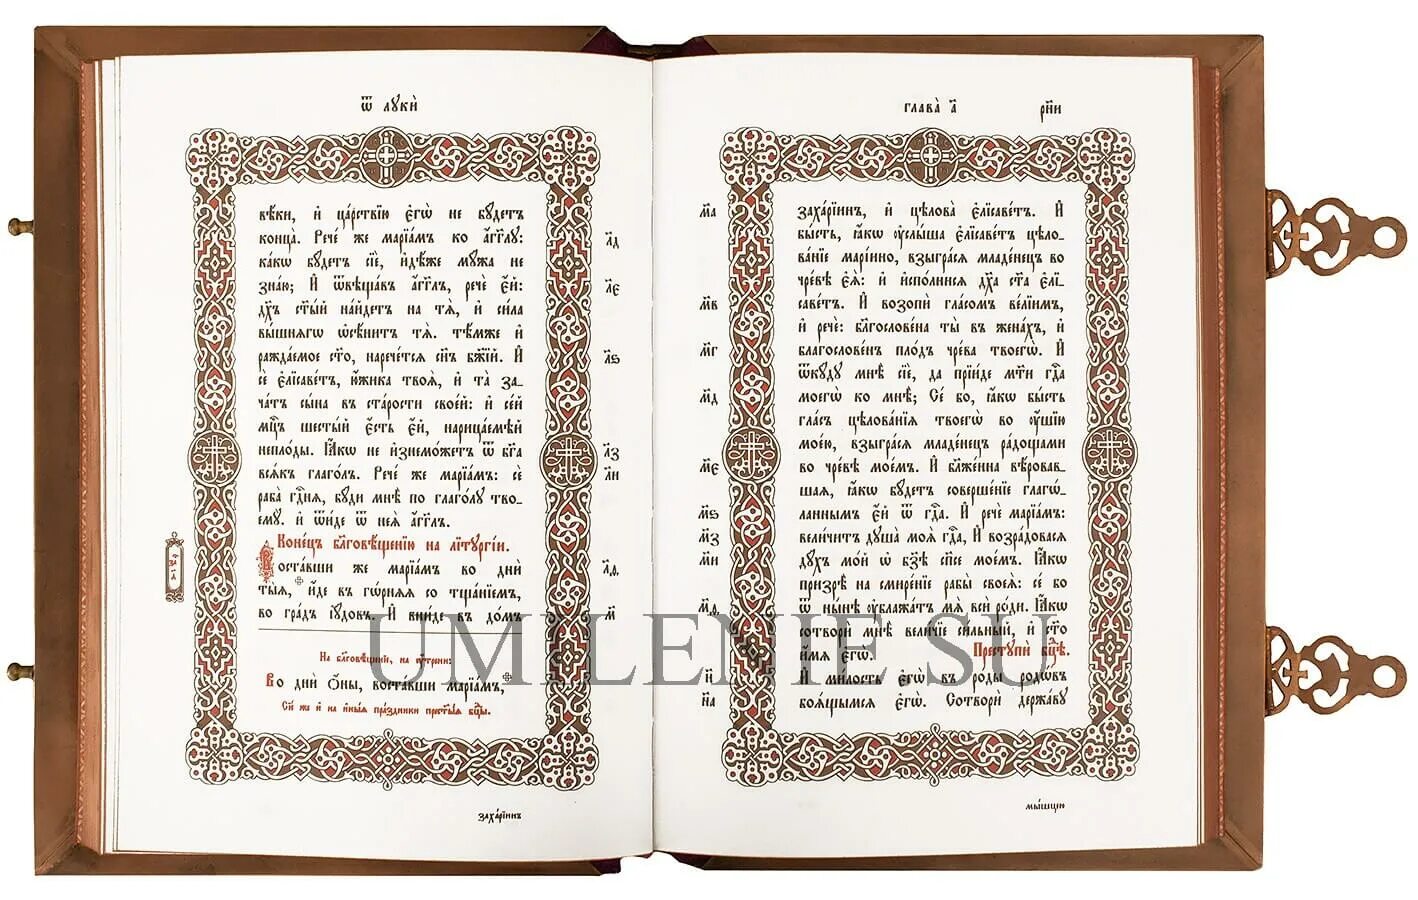 Ѿ лꙋки́
вѣ́ки, и҆ ца́рствїю є҆гѡ̀ не бꙋ́детъ
конца̀. Рече́ же марїа́мъ ко а҆́гг҃лꙋ:
ка́кѡ бꙋ́детъ сїѐ, и҆дѣ́же мꙋ́жа не
зна́ю; И҆ ѿвѣща́въ а҆́гг҃лъ, речѐ є҆́й:
дх҃ъ ст҃ы́й на́йдетъ на тѧ̀, и҆ си́ла
вы́шнѧгѡ ѡ҆сѣни́тъ тѧ̀. тѣ́мже и҆
ражда́емое ст҃о, нарече́тсѧ сн҃ъ бж҃їй. И҆
сѐ є҆лїсаве́тъ, ю҆́жика твоѧ̀, и҆ та̀ за-
ча́тъ сы́на въ ста́рости свое́й: и҆ се́й
мц҃ъ шесты́й є҆́сть є҆́й, нарица́емѣй
непло́ды. Ꙗ҆́кѡ не и҆знемо́жетъ ѿ бг҃а
всѧ́къ глаго́лъ. Рече́ же марїа́мъ: сѐ
раба̀ гд҃нѧ, бꙋ́ди мнѣ̀ по глаго́лꙋ тво-
емꙋ̀. и҆ ѿи́де ѿ неѧ̀ а҆́гг҃лъ.
Коне́цъ бл҃говѣ́щенїю на лїтꙋргі́и.
Воста́вши же марїа́мъ во дни̑
ты̑ѧ, и҆́де въ гѡ́рнѧѧ со тща́нїемъ,
во гра́дъ і҆ꙋ́довъ. И҆ вни́де въ до́мъ
На бл҃говѣ́щенїи, на ᲂу҆́трени:
Во дни̑ ѻ҆́ны, воста́вши марїа́мъ,
Сїе́ же и҆ на и҆ны́ѧ пра́здники прест҃ы́ѧ бц҃ы.
л҃д
л҃є
л҃ѕ
л҃з
л҃и
л҃ѳ
м҃
заха́рїинъ
глава̀ а҃
рн҃и
заха́рїинъ, и҆ цѣлова̀ є҆лїсаве́тъ. И҆
бы́сть, ꙗ҆́кѡ ᲂу҆слы́ша є҆лїсаве́тъ цѣло-
ва́нїе марі́ино, взыгра́сѧ младе́нецъ во
чре́вѣ є҆ѧ̀: и҆ и҆спо́лнисѧ дх҃а ст҃а є҆лї-
саве́тъ. И҆ возопѝ гла́сомъ ве́лїимъ,
и҆ речѐ: бл҃гослове́на ты̀ въ жена́хъ, и҆
благослове́нъ пло́дъ чре́ва твоегѡ̀. И҆
ѿкꙋ́дꙋ мнѣ̀ сїѐ, да прїи́де мт҃и гд҃а
моегѡ̀ ко мнѣ̀; Се́ бо, ꙗ҆́кѡ бы́сть
гла́съ цѣлова́нїѧ твоегѡ̀ во ᲂу҆́шїю
мое́ю, взыгра́сѧ младе́нецъ ра́дощами
во чре́вѣ мое́мъ. И҆ бл҃же́нна вѣ́ровав-
шаѧ, ꙗ҆́кѡ бꙋ́детъ соверше́нїе глагѡ́-
ланнымъ є҆́й ѿ гд҃а. И҆ речѐ марїа́мъ:
вели́читъ дꙋша̀ моѧ̀ гд҃а, И҆ возра́довасѧ
дꙋ́хъ мо́й ѡ҆ бз҃ѣ сп҃сѣ мое́мъ. Ꙗ҆́кѡ
призрѣ̀ на смире́нїе рабы̀ своеѧ̀: се́ бо
ѿ ны́нѣ ᲂу҆блажа́тъ мѧ̀ всѝ ро́ди. Ꙗ҆́кѡ
сотворѝ мнѣ̀ вели́чїе си́льный, и҆ ст҃о
и҆́мѧ є҆гѡ̀. Престꙋпѝ бц҃ѣ.
И҆ ми́лость є҆гѡ̀ въ ро́ды родѡ́въ
боѧ́щымсѧ є҆гѡ̀. Сотворѝ держа́вꙋ
м҃а
м҃в
м҃г
м҃д
м҃є
м҃ѕ
м҃з
м҃и
м҃ѳ
н҃
н҃а
мы́шцею
UMILENIE SU